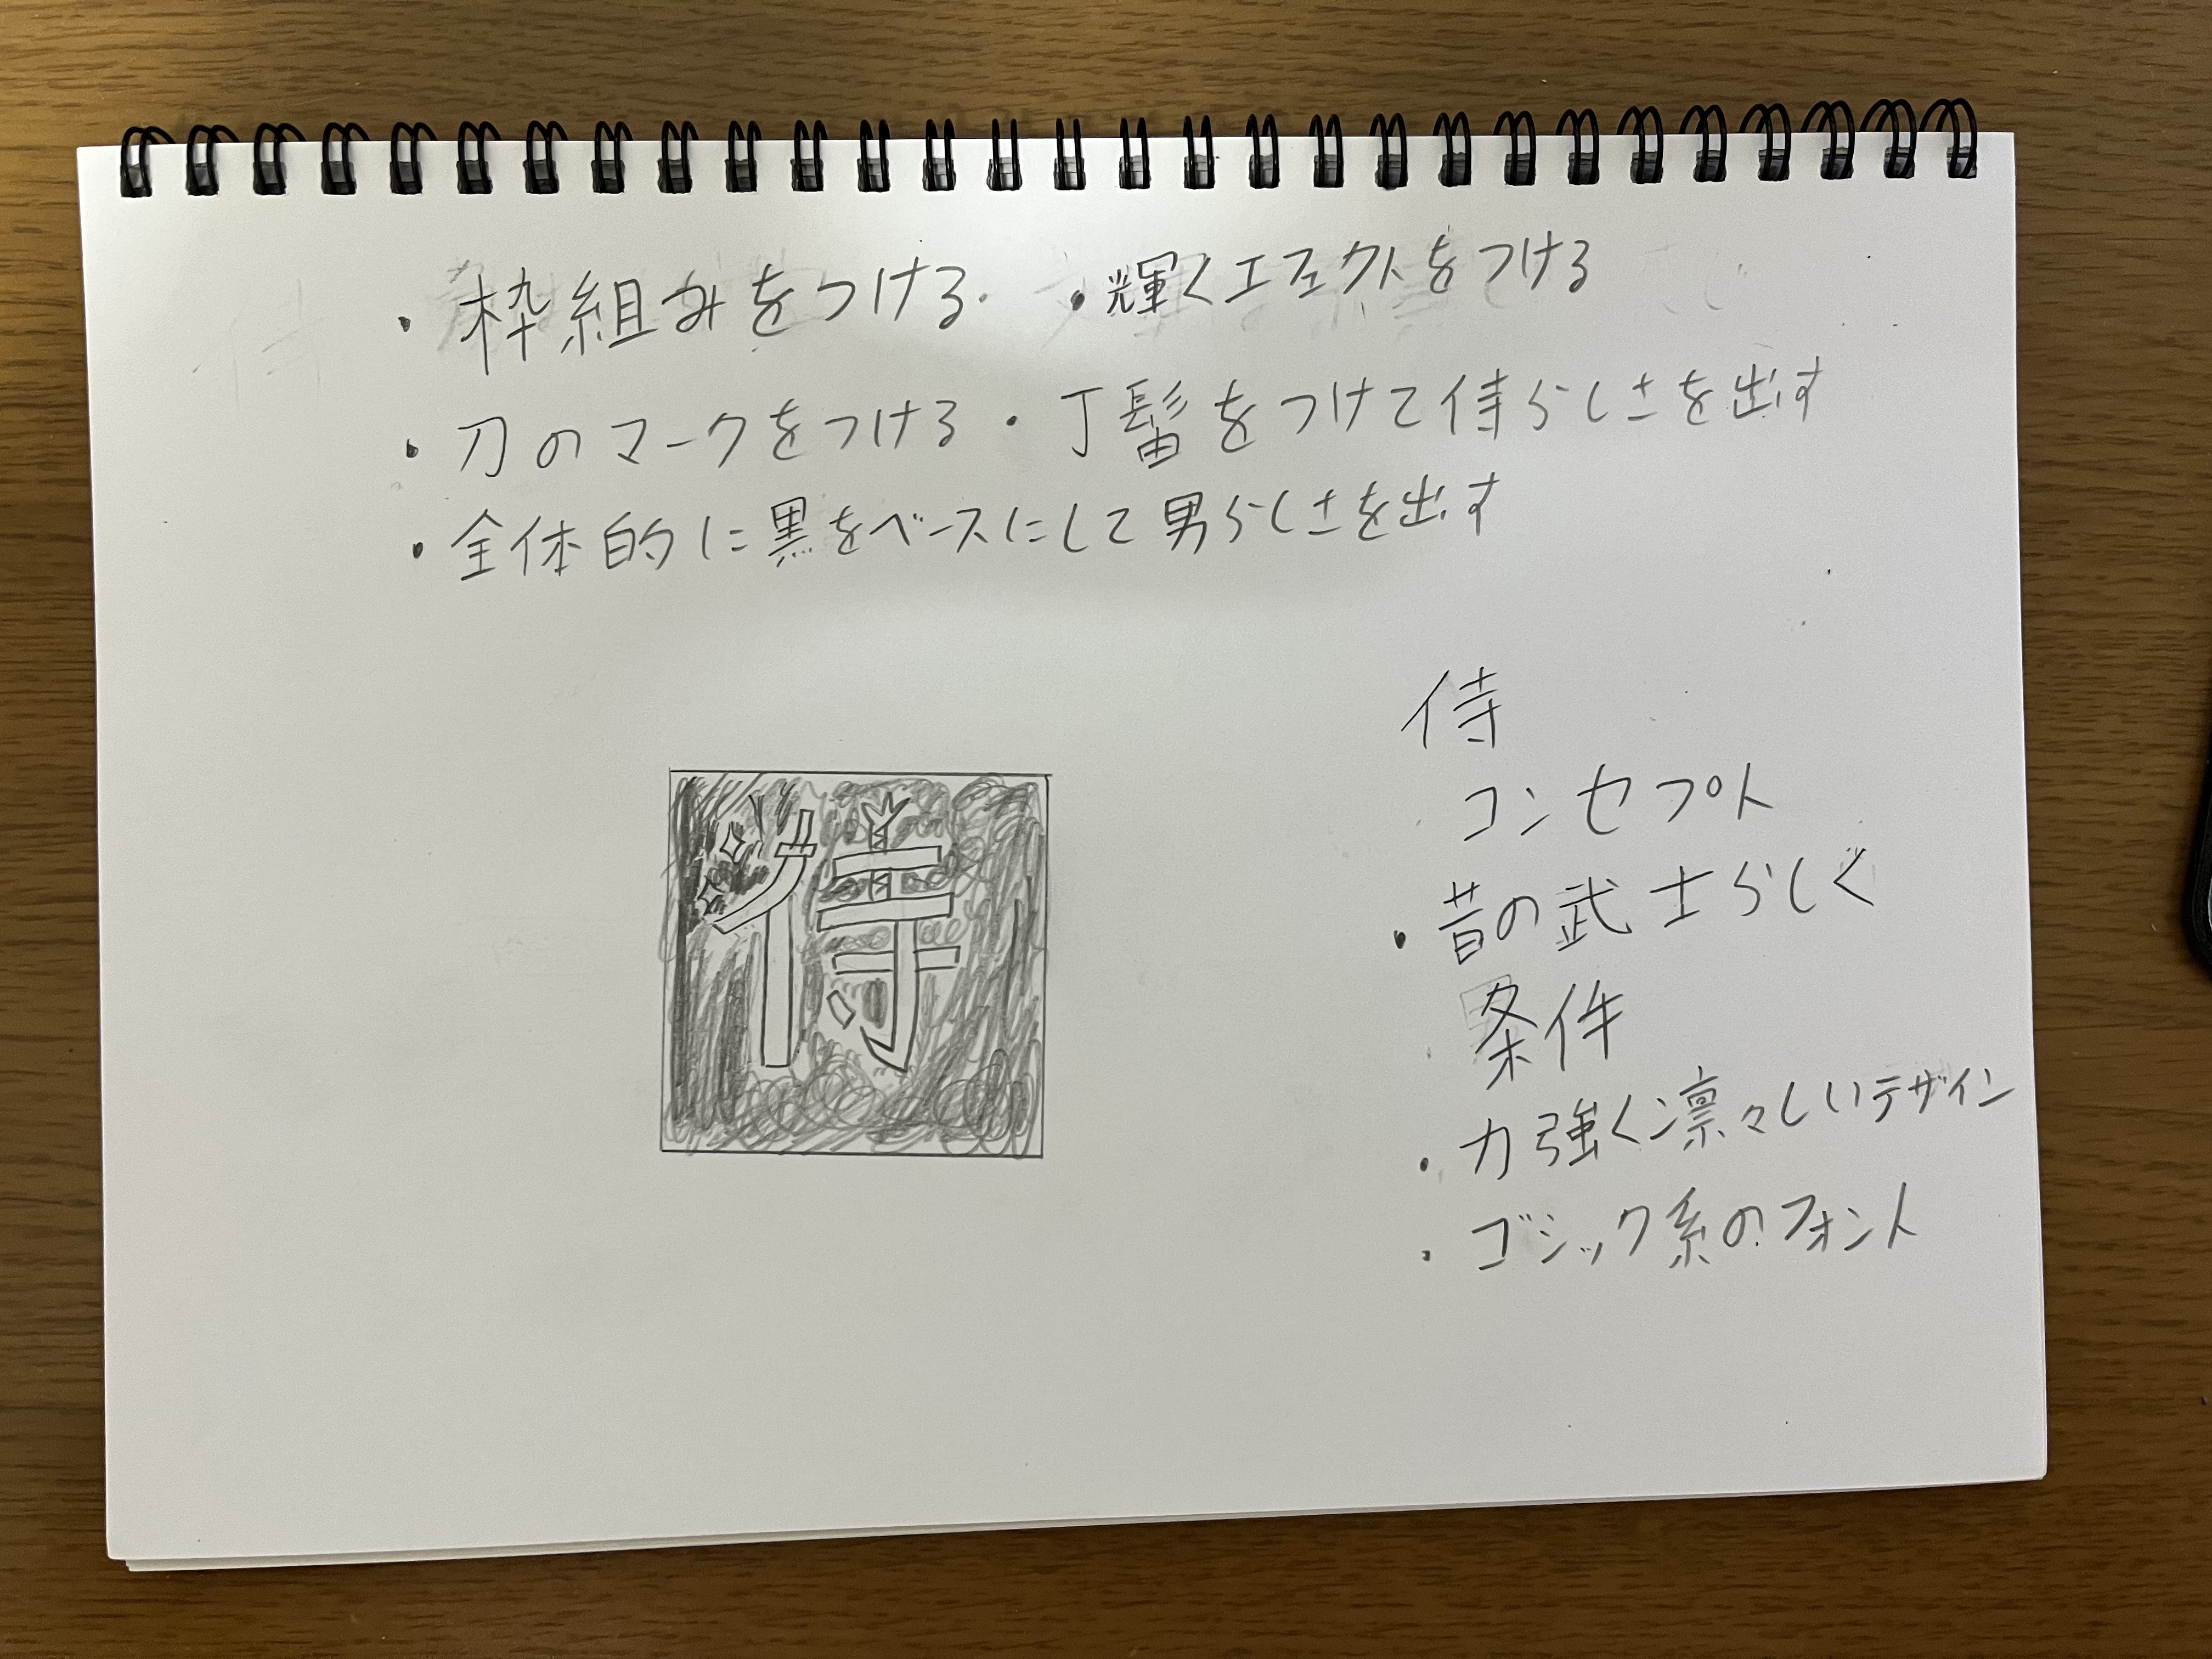 ・枠組みをつける ・輝くエフェクトをつける
・刀のマークをつける ・丁髷をつけて侍らしさを出す
・全体的に黒をベースにして男らしさを出す
侍
コンセプト
・昔の武士らしく
条件
・力強く凛々しいデザイン
・ゴシック系のフォント
侍